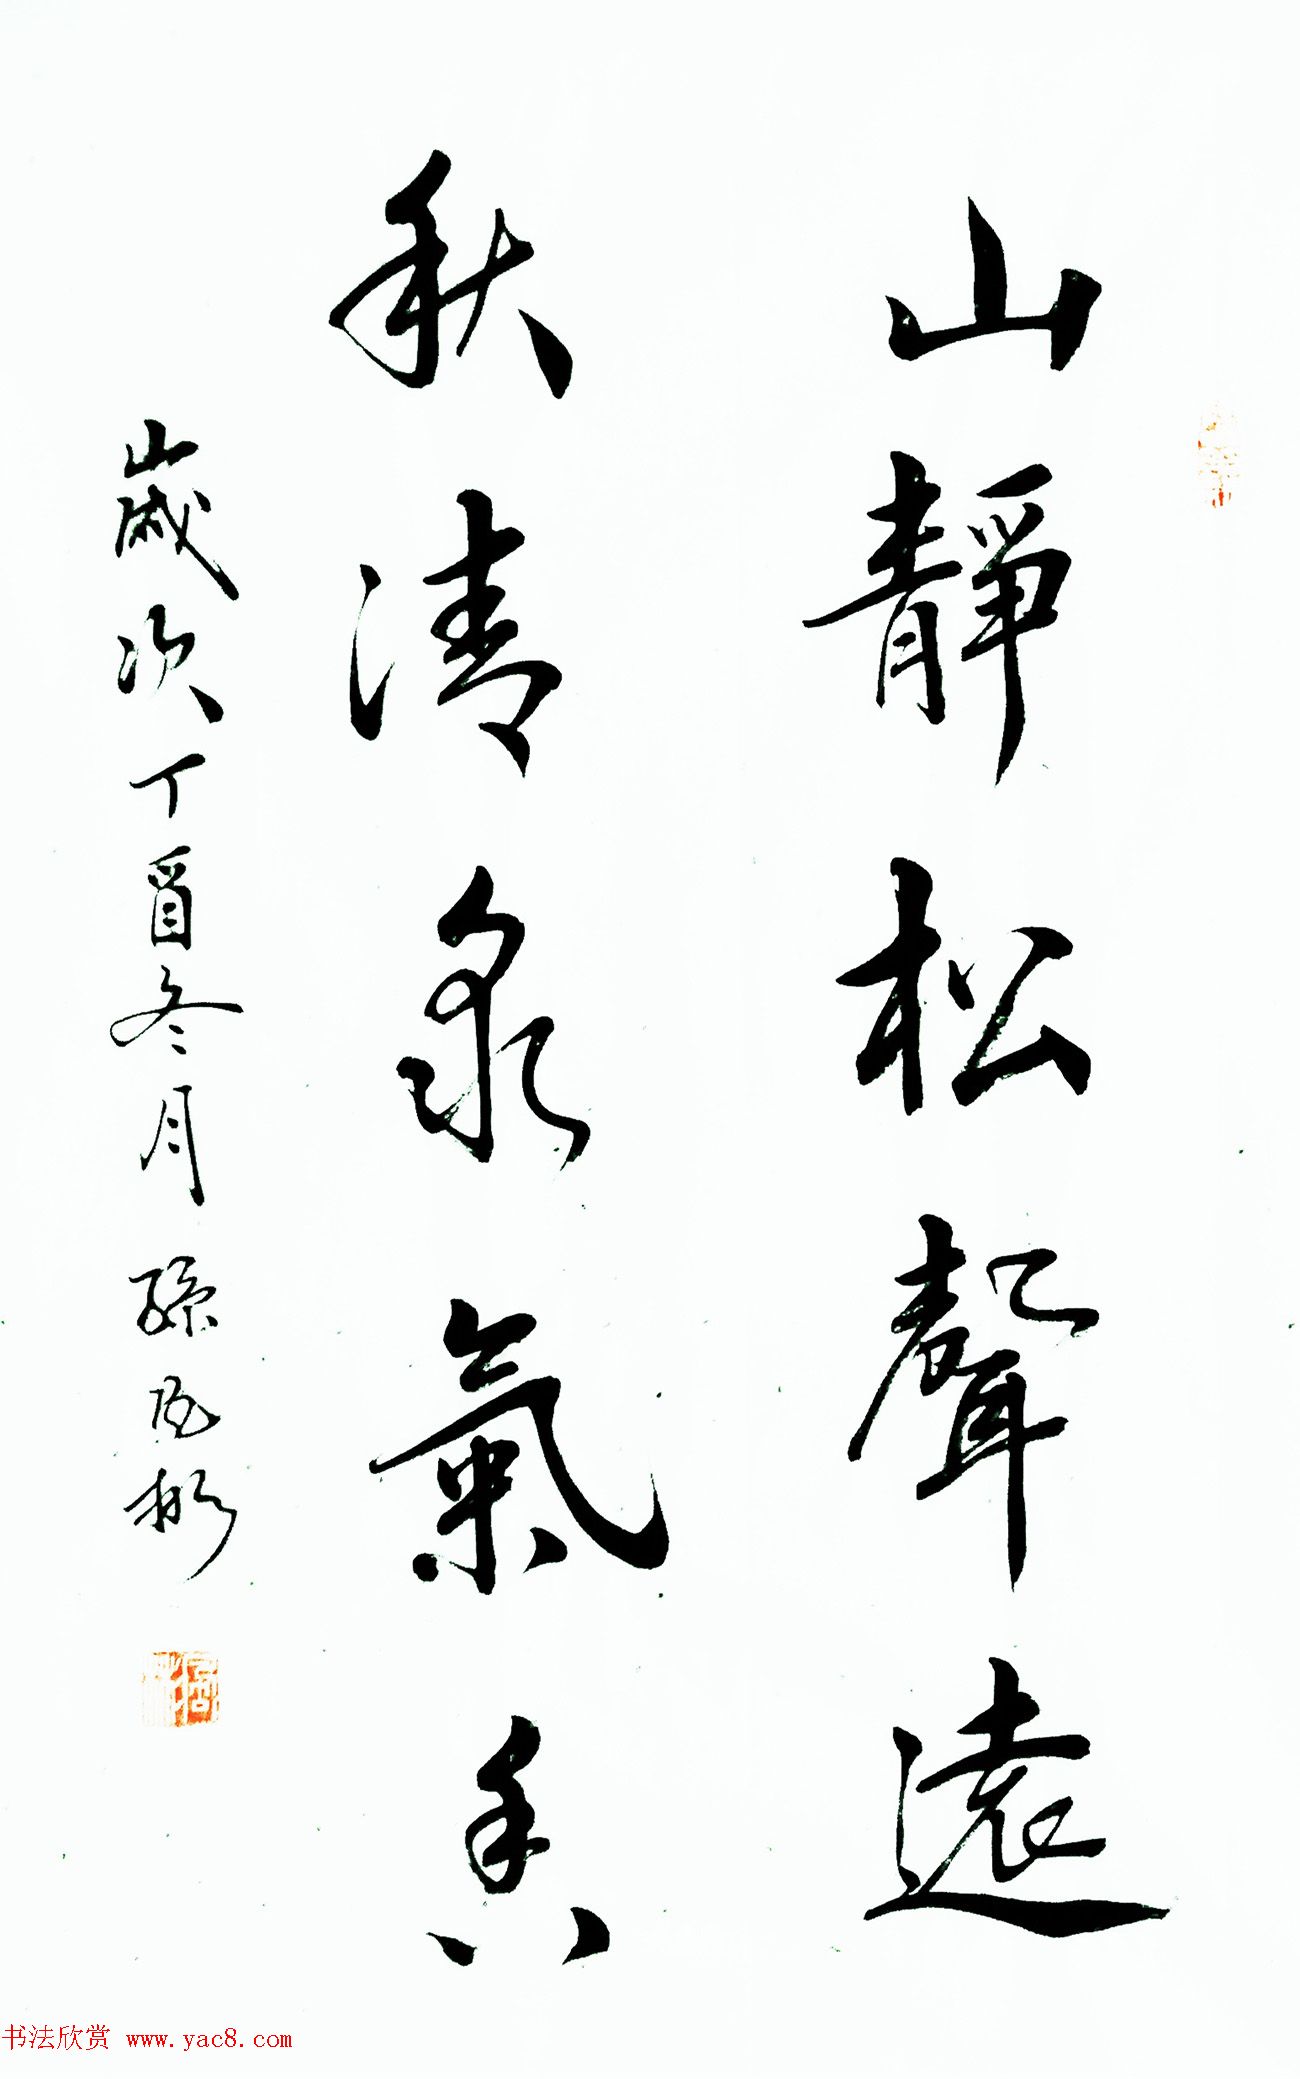 山靜松聲遠
秋清泉氣香
歲次丁酉冬月孫
书法欣赏 www.yac8.com